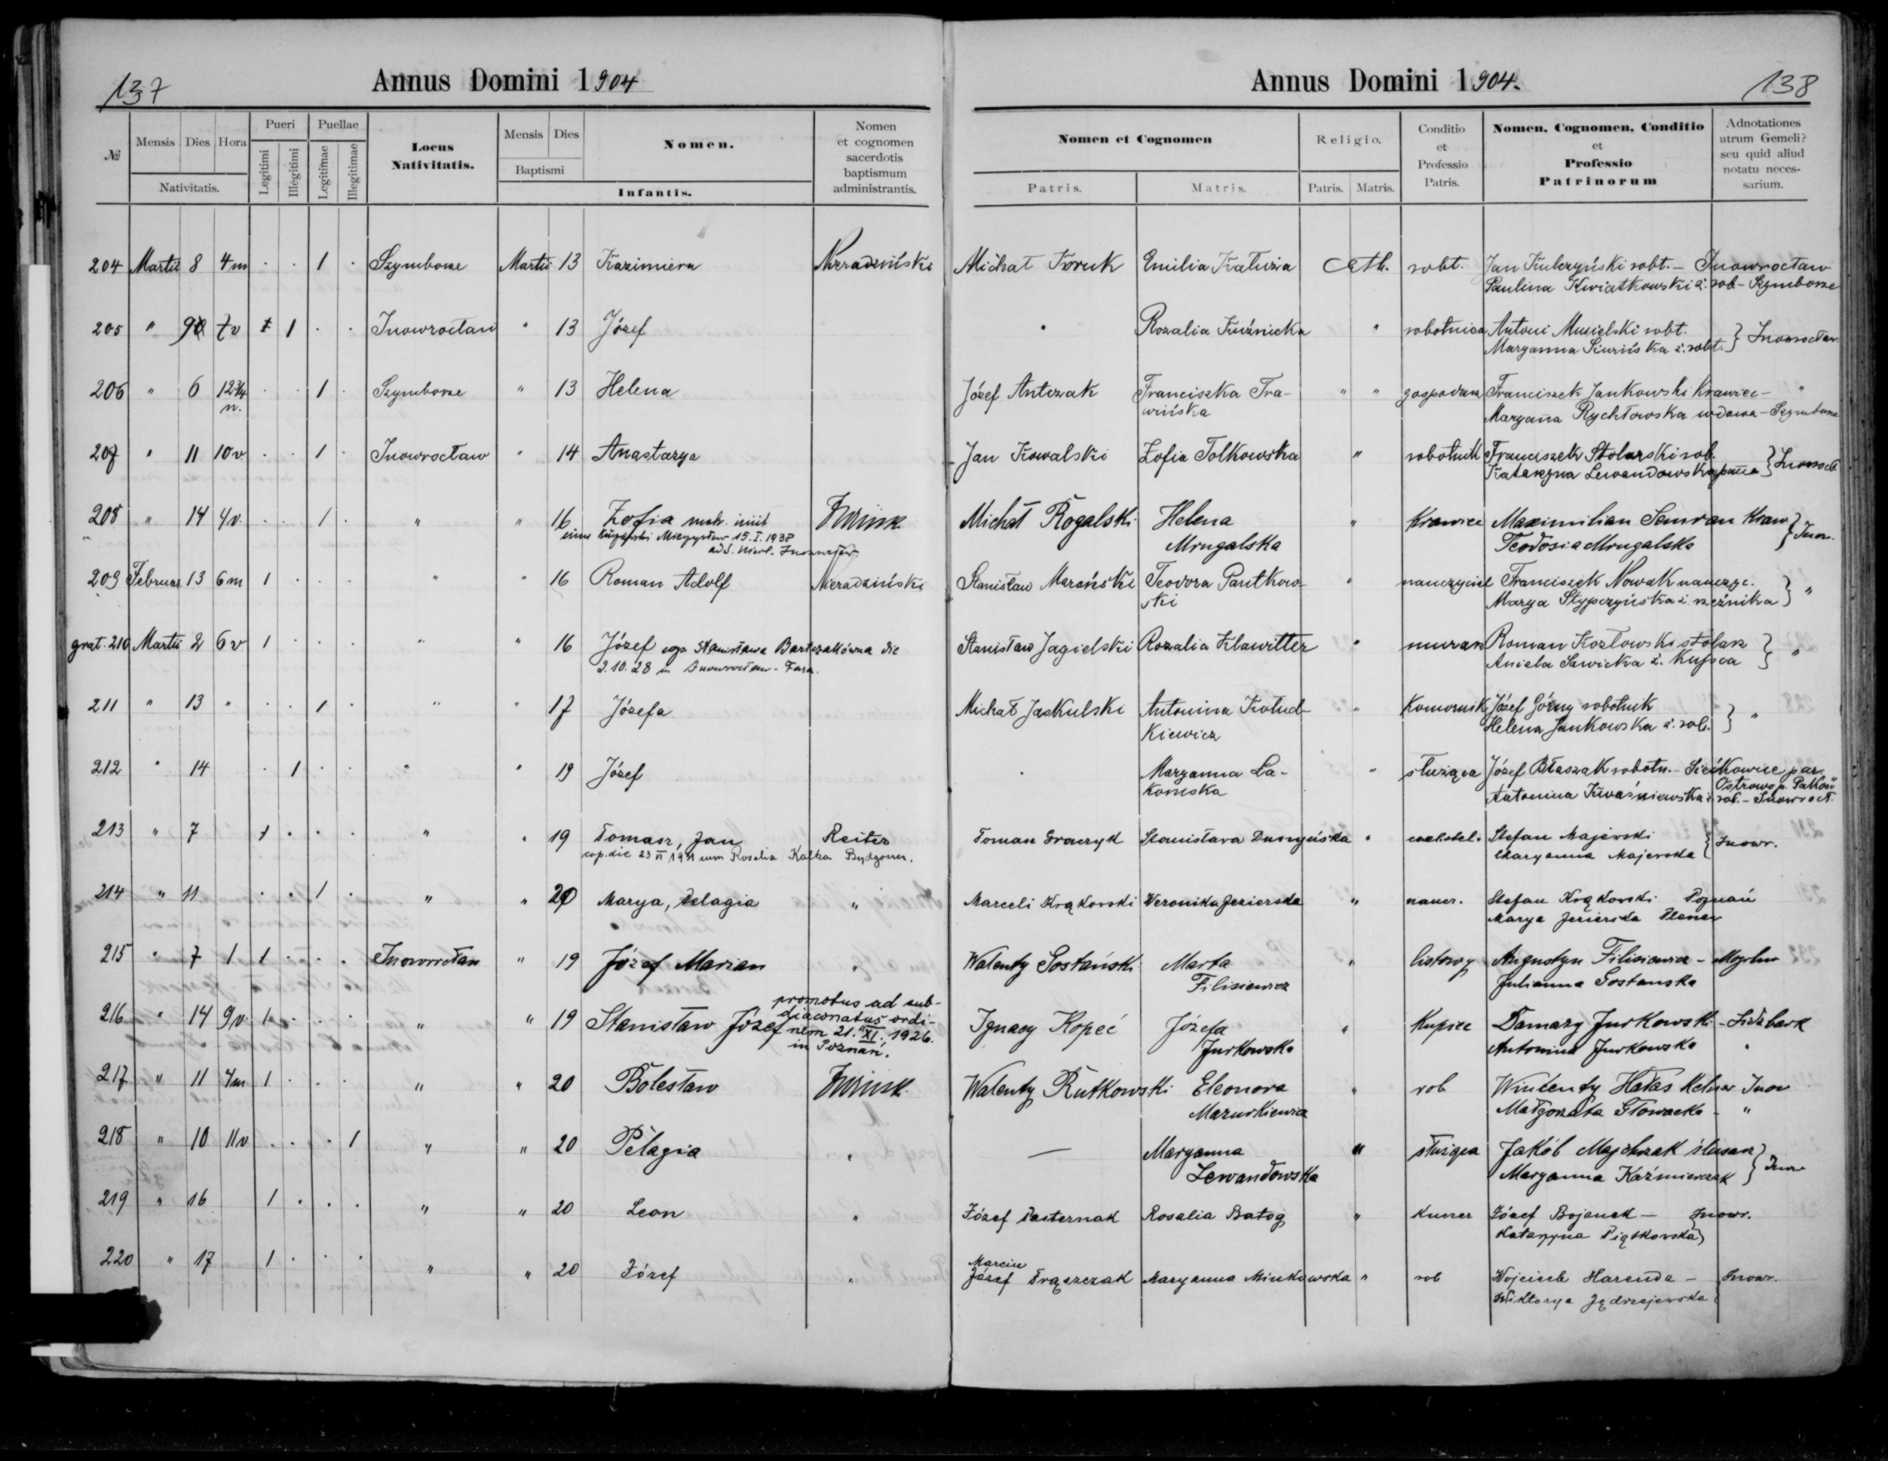 137
Annus Domini 1904
Annus Domini 1904.
138
№ Mensis Dies Hora Pueri Puellae Locus Nativitatis. Mensis Dies Nomen. Nomen et cognomen sacerdotis baptismum administrantis.
Nativitatis. Legitimi Illegitimi Legitimae Illegitimae Baptismi Infantis.
Nomen et Cognomen Religio. Conditio et Professio Patris. Nomen, Cognomen, Conditio et Professio Patrinorum Adnotationes utrum Gemeli? seu quid aliud notatu necessarium.
Patris. Matris. Patris. Matris.
204 Martii 8 4m . . 1 . Szymborze Martii 13 Kazimiera Michał Emilia Kałuzia Cath. robt. Jan Kulczyński robt. – Inowrocław
Paulina Kwiatkowski ż. rob – Szymborze
205 " 9 7v 1 . . Inowrocław " 13 Józef " Rozalia Kuźnicka " robotnica Antoni Musielski robt. } Inowrocław
Maryanna ż. robt.
206 " 6 12¾ n. . . 1 . Szymborze " 13 Helena Józef Antczak Franciszka Tra- " " gospodarz Franciszek Jankowski krawiec – "
wińska Maryana Rychłowska wdowa – Szymborze
207 " 11 10v . . 1 . Inowrocław " 14 Anastazya Jan Kowalski Zofia Tolkowska " robotnik Franciszek Stolarski rob.
Katarzyna Lewandowska panna } Inowrocł.
208 " 14 4v . . 1 . " " 16 Zofia matr. iniit Michał Rogalski Helena " Krawiec Maximilian Semrau Kraw } Inow.
Mieczysław 15.I.1938 Mrugalska Teodosia Mrugalska
ad S. Nicol. Inowrocław
209 Februar 13 6m 1 . . . " " 16 Roman Adolf Stanisław Teodora Pautkow- " nauczyciel Franciszek Nowak nauczyc. } "
ski Marya Stypczyńska ż. rzeźnika
grat. 210 Martii 2 6v 1 . . . " " 16 Józef Stanisława Bartczakówna die Stanisław Jagielski Rozalia Klawitter " murarz Roman Kozłowski stolarz } "
2.10.28 in Inowrocław - Fara. Aniela Sawicka ż. Kupca
211 " 13 " . . 1 . " " 17 Józefa Michał Jaskulski Antonina Kołud- " Komornik Józef Górny robotnik } "
kiewicz Helena Jankowska ż. rob.
212 " 14 . 1 . . " " 19 Józef . Maryanna La- " służąca Józef Błaszak robotn. –
komska Antonina Kwaśniewska ż. rob. – Inowrocł.
213 " 7 1 . . . " " 19 Tomasz, Jan Reiter Toman Graczyk Stanisława " Stefan Majewski } Inowr.
cop. die 23 II 1931 cum Rosalia Kałka Bydgoszcz. Maryanna Majewska
214 " 11 . . 1 . " " 20 Marya, Pelagia " Marceli Krąkowski Weronika Jezierska " naucz. Stefan Krąkowski Poznań
Marya Jezierska
215 " 7 1 1 . . . Inowrocław " 19 Józef Marian " Walenty Sostański Marta " listowy Augustyn Filisiewicz – Mogilno
Filisiewicz Julianna Sostanska
216 " 14 9v 1 . . . " " 19 Stanisław Józef promotus ad sub-
diaconatus ordi-
nem 21. XI. 1926.
in Poznań.
Ignacy Kopeć Józefa " Kupiec Damazy Jurkowski –
Jurkowska Antonina Jurkowska "
217 " 11 4m 1 . . . " " 20 Bolesław Walenty Rutkowski Eleonora " rob Wincenty Hałas Inow
Mazurkiewicz Małgorzata Głowacka – "
218 " 10 11v . . . 1 " " 20 Pelagia " — Maryanna " służąca Jakób Majchrzak ślusarz } Inow
Lewandowska Maryanna Kaźmierczak
219 " 16 1 . . . " " 20 Leon " Józef Pasternak Rosalia Batog " Józef Bojanek – Inowr.
Katarzyna Piątkowska
220 " 17 1 . . . " " 20 Józef " Marcin
Józef Frąszczak Maryanna Minkowska " rob Wojciech Harenda – Inowr.
Wiktorya Jędrzejewska